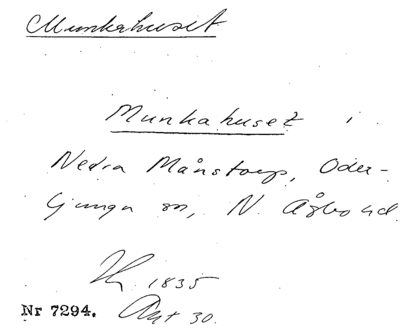 Munkahuset
Munkahuset i
Nedra Månstorp, Oder-
ljunga sn, N. Åsbo hd.
1835
Nr 7294. Akt 30.